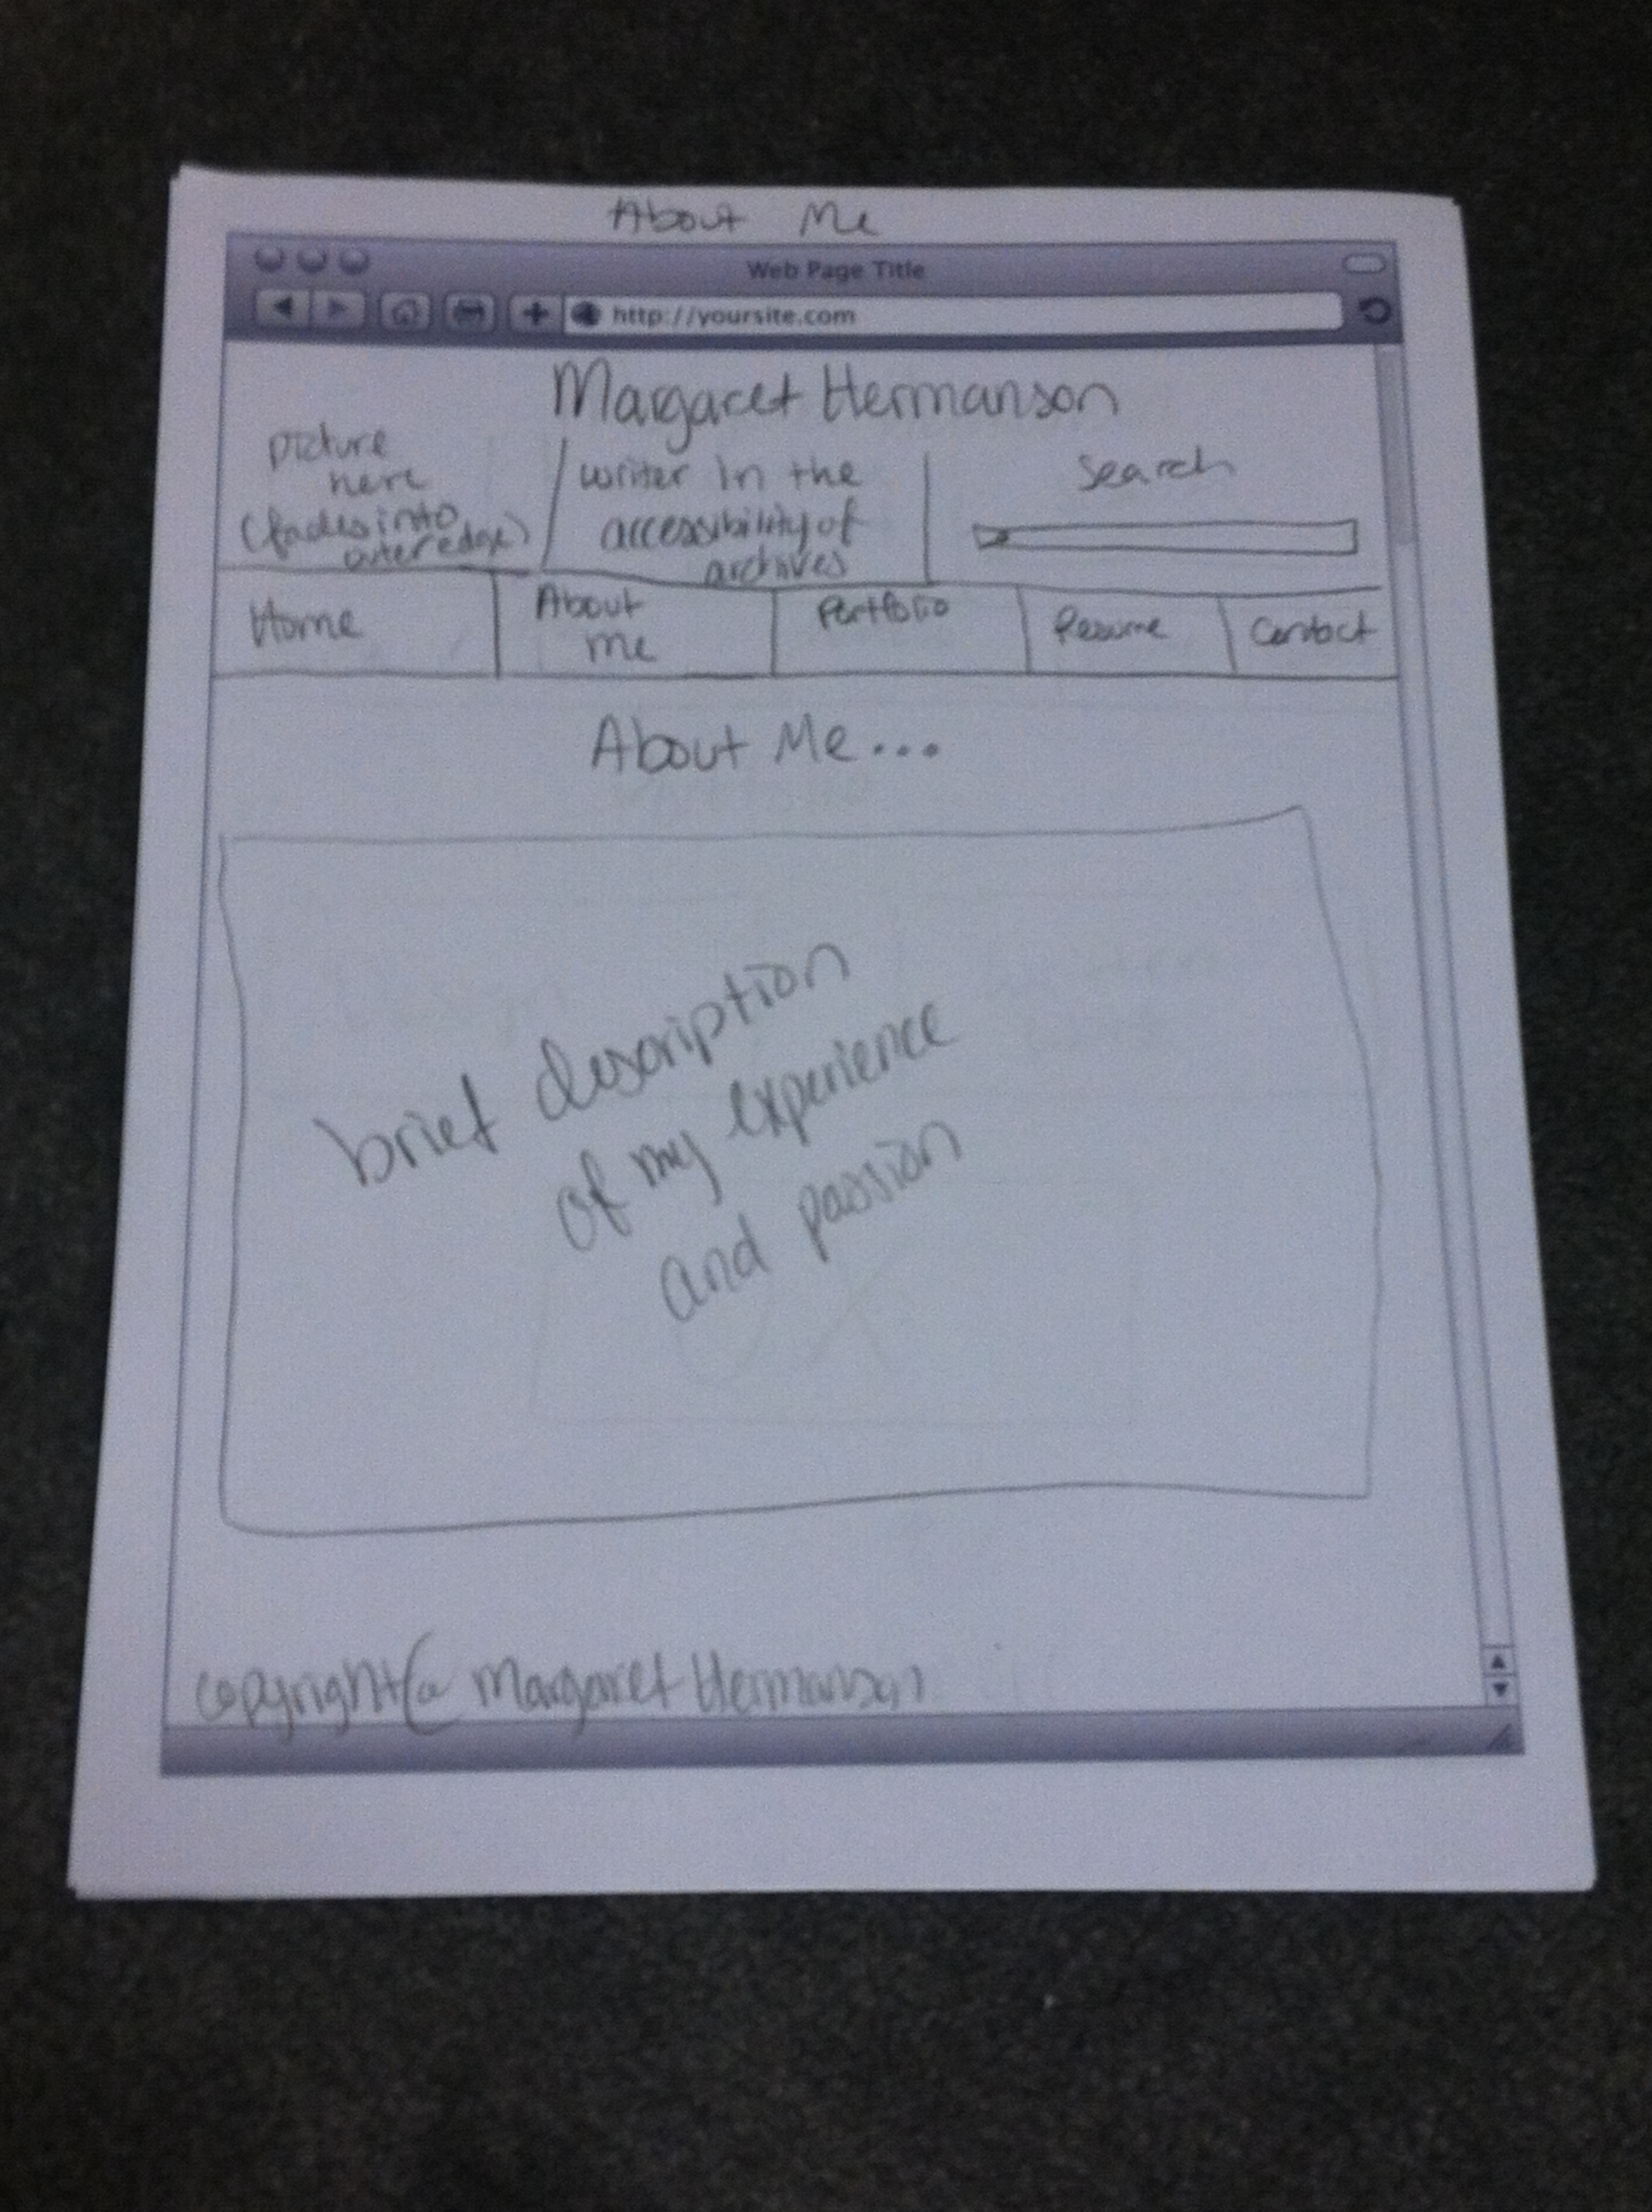 About Me
Web Page Title
http://yoursite.com
Margaret Hermanson
picture
here
(fades into
outer edge)
writer in the
accessibility of
archives
Search
Home
About
me
Portfolio
Resume
Contact
About Me...
brief description
of my experience
and passion
copyright@ Margaret Hermanson